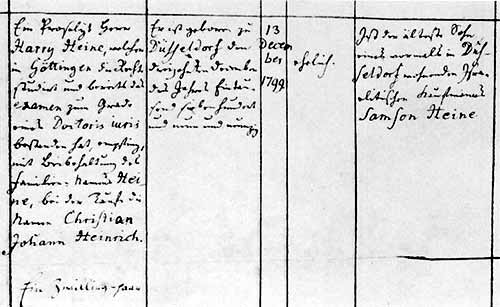 Ein Proselyt Herr
Harry Heine, welcher
in Göttingen die Rechte
studirt und bereits das
Examen zum Grade
eines Doctoris iuris
bestanden hat, empfing,
mit Beibehaltung des
Familien-Namens Hei-
ne, bei der Taufe die
Namen Christian
Johann Heinrich.
Ein Zwillings-paar
Er ist geboren zu
Düsseldorf den
dreizehnten December
des Jahres Eintau-
send siebenhundert
und neun und neunzig
13
Decem
ber
1799
ehelich.
Ist der älteste Sohn
eines vormals in Düs-
seldorf wohnenden Isra-
elitischen Kaufmannes
Samson Heine.